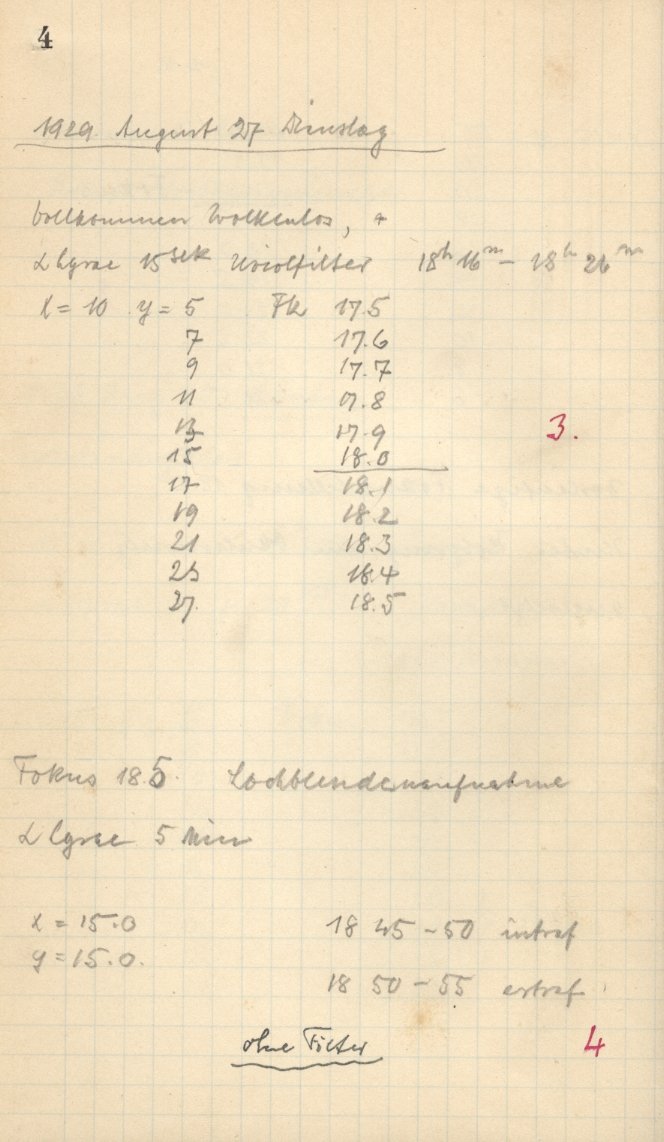 4
1929 August 27 Dienstag
Vollkommen Wolkenlos,
α Lyrae 15 sek Uviolfilter 18h 16m – 18h 26m
X = 10 y = 5 Fk 17.5
7 17.6
9 17.7
11 17.8
13 17.9
3.
15 18.0
17 18.1
19 18.2
21 18.3
23 18.4
27. 18.5
Fokus 18.5. Lochblendenaufnahme
α Lyrae 5 Min
x = 15.0 18 45 – 50 intraf
y = 15.0.
18 50 – 55 extraf
ohne Filter 4